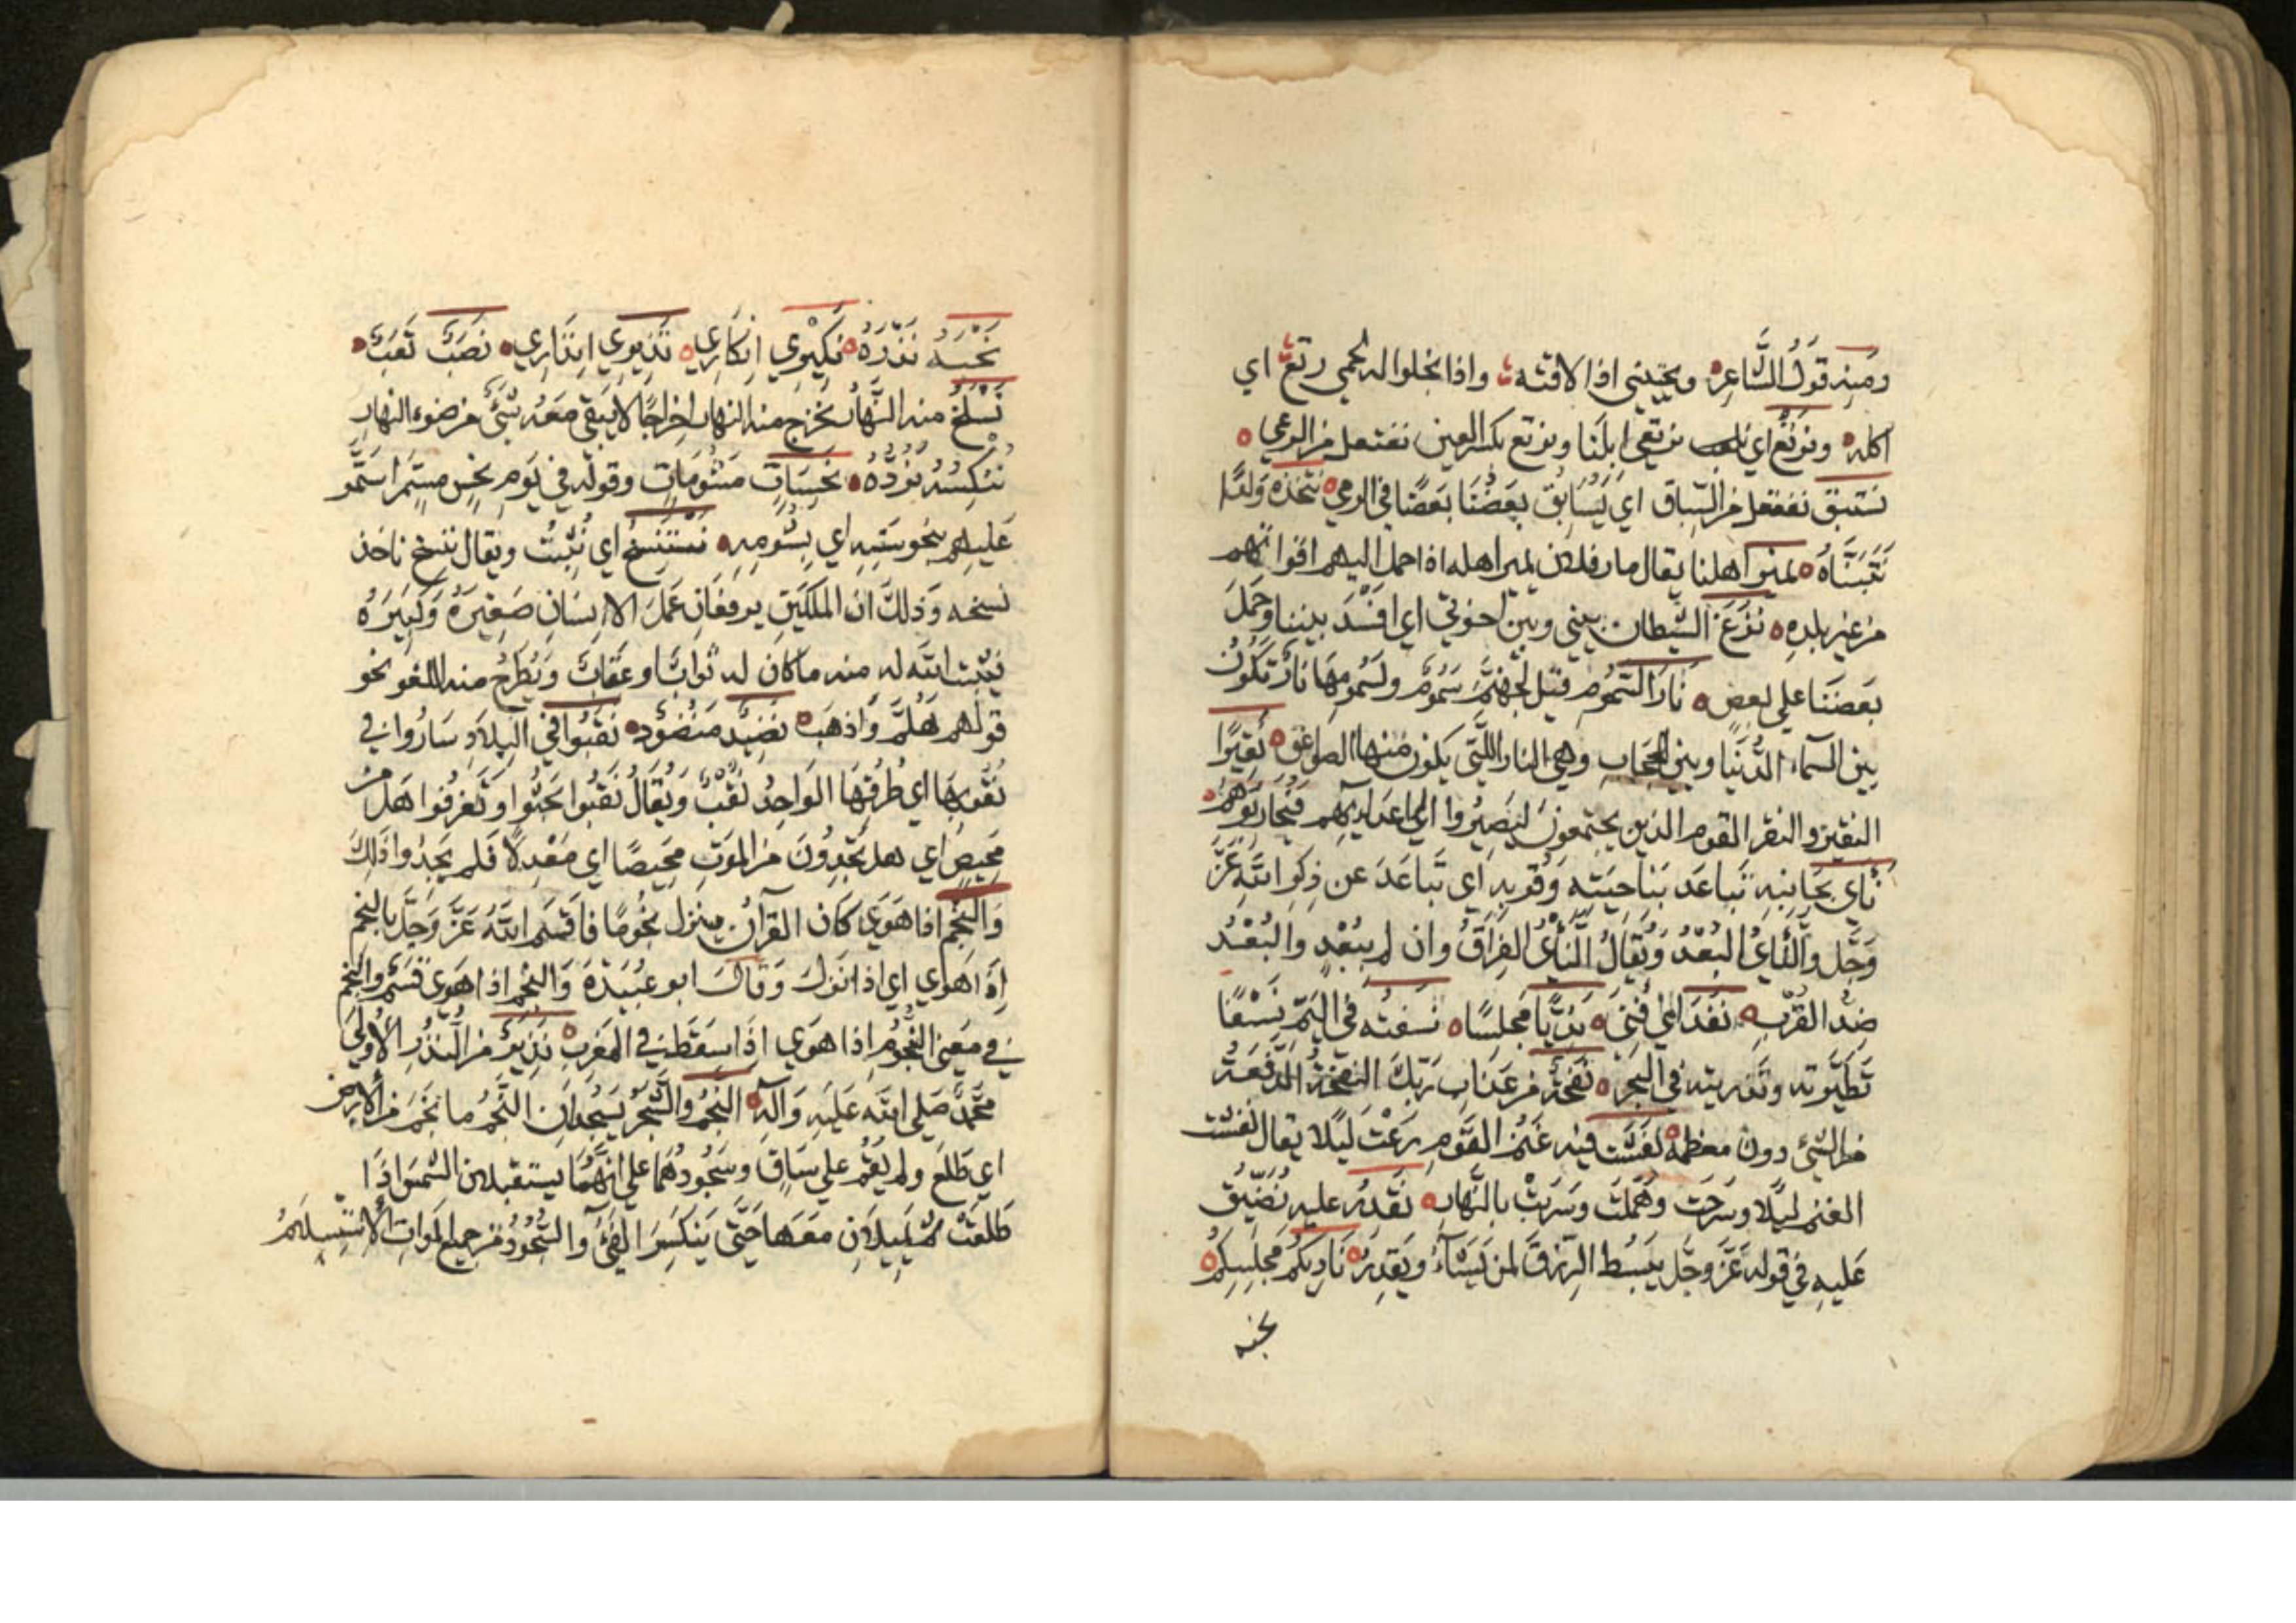 ومنه قَولُ الشَّاعِرِ ويحيّيني اذا لاقيته واذا يخلوا له لحمي رتع اي
اكله ونَرتَعِ اي نرتعي ابلَنا ونرتع بكسر العين نفتعل من الرعي
نستبق نفتعل من السِّباق اي يُسَابِقُ بعضُنا بَعضًا في الرمي نتّخذه وَلدًا
نَتَبَنَّاهُ نمير اهلنا يقال مار فلان يمير اهله اذا حمل اليهم اقواتهم
من غير بلدِهِ نَزَغَ الشيطان بيني وبين اخوتي اي افسَدَ بيننا وحَمَلَ
بعضَنا علي بعضٍ نارَ السَّمُومِ قيل لجهنَّمَ سَمُومٌ ولسَمُومِهَا نارٌ تكونُ
بين السَّمآء الدُّنيَا وبين الحِجَاب وهي النار الَّتي يكون منها الصواعق نَفِيرًا
النفير والنفر القوم الذين يجتمعون ليَصِيرُوا الي اعدايهم فيُحاربُوهم
نأي بجَانِبِهِ تباعَد بنَاحِيَتِه وَقُربِهِ اَي تَبَاعَدَ عن ذِكرِ اللهِ عَزَّ
وَجَلَّ والنَّأيُ البُعْدُ وَيُقَالُ النَّأيُ الفِرَاقُ وان لم ببُعْدٍ والبُعْدُ
ضِدُّ القُرْبِ نَفِدَ اي فَنِيَ نَدِيًّا مَجلِسًا نَسفتُه في اليَمِّ نَسْفًا
تطيّرته وتذريته في البَحر نَفحَةٌ من عَذابِ رَبِّكَ النَّفحَةُ الدَّفعَةُ
من الشئ دون معظمه نَفَشَتْ فيه غنمُ القَومِ رَعَتْ لَيلًا يقال نَفَشَت
الغنم لَيلًا وسَرَحَت وهَمَلَت وسَرَبَتْ بالنَّهار نَقْدِرَ عليهِ نُضَيِّقَ
عَليهِ في قوله عَزَّ وجَلَّ يَبسُط الرِّزقَ لمن يَشَآءُ ويَقدِرُ نَادِيكُم مَجلِسِكم
نحبه
نَحْبَهُ نَذْرَهُ نَكيري اِنكَارِي نذيري اِنذَارِي نَصَبٌ تَعَبٌ
نَسْلَخُ منه النَّهَارَ نُخرج منه النهار اِخراجًا لا يَبقي مَعَهُ شَئٌ من ضوء النهار
نُنَكِّسْهُ نَرُدُّهُ نَحِسَاتٍ مَشْومَاتٍ وقوله في يَومِ نَحْسٍ مستَمِرٍّ استَمَرَّ
عَليهم بنحوستِهِ اي بِشُومِهِ نَستَنسِخُ اي نُثْبِتُ ويقال ننسخ ناخذ
نسخه وَذلكَ انَّ المَلَكَينِ يرفعَانِ عَمَلَ الاِنسَانِ صَغِيرَهُ وَكَبِيرَهُ
فيُثْبِتُ اللَّه له منه ماكَان له ثَوابٌ او عِقَابٌ وَيُطرَحُ منه اللغو نحو
قولهم هَلُمَّ وَاذهَب نَضِيدٌ مَنضُودٌ نَقَّبُوا في البِلاَدِ سَارُوا في
نُقُوبِهَا اي طُرُقِهَا الوَاحِدُ نَقْبٌ وَيُقَالُ نَقَّبُوا بَحَثُوا وتَعَرَّفُوا هَل من
مَحِيصٍ اَي هل يَجِدُونَ من المَوتِ مَحِيصًا اي مَعْدِلًا فَلم يَجِدُوا ذَلِكَ
وَالنَّجْمِ اذا هَوَي كان القرآنُ ينزل نجُومًا فَاَقسَمَ اللَّهُ عَزَّ وَجَلَّ بالنجم
اِذَا هَوي اي اذا نَزَلَ وَقَالَ ابو عُبَيدَةَ وَالنجم اذا هَوَي قَسَمٌ والنجم
في معنى النُّجُومِ اذا هوَي اِذَا سقَطت في المَغربِ نَذِيرٌ من النُّذُرِ الاُولي
مُحَمَّدٌ صَلي اللَّه عَليهِ وَآلِه النَّجْمُ والشَّجَرُ يَسجُدَانِ النَّجمُ ما نَجَمَ من الارض
اي طَلَعَ ولم يَقُم علي سَاقٍ وسُجُودُهُمَا علي انَّهُمَا يستقبلان الشمس اذَا
طَلَعَتْ ثم يَمِيلاَنِ مَعَهَا حَتَّي يَنكَسِرَ الفَئُ والسُّجُودُ من جميع المَوَاتِ الاستِسلَامُ